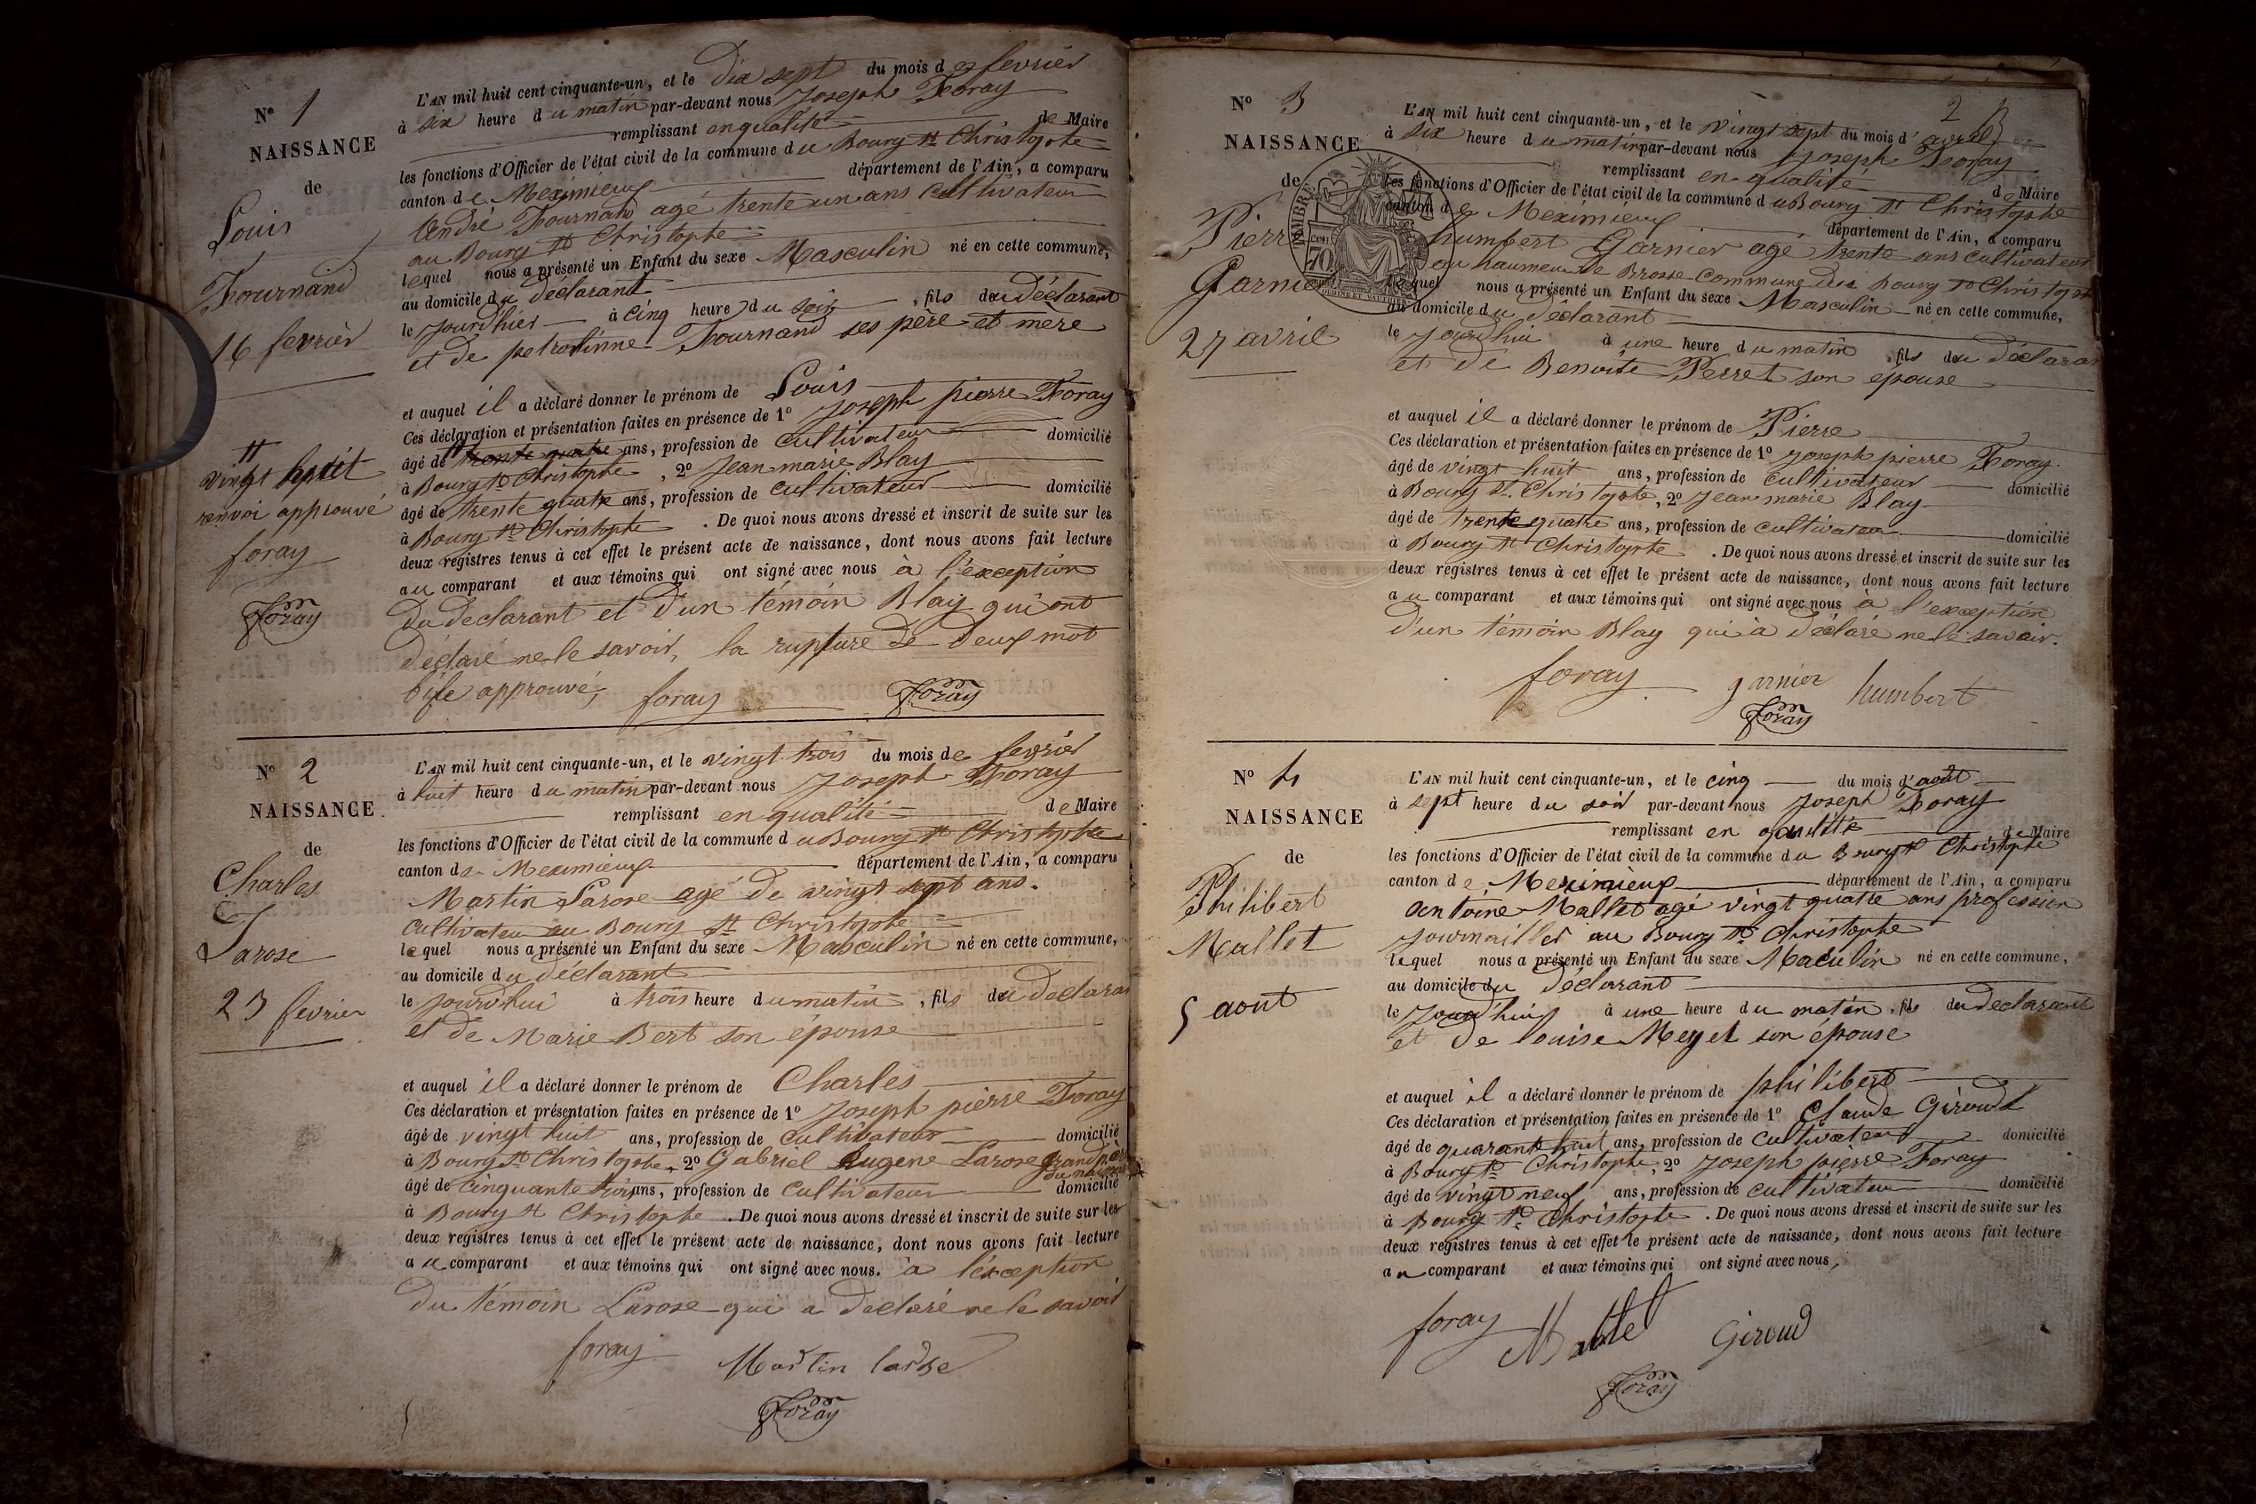 N° 1
NAISSANCE
de
Louis
Fournand
16 fevrier
vingt huit
renvoi approuvé
foray
Foray
L'AN mil huit cent cinquante-un, et le dix sept du mois de fevrier
à six heure du matin par-devant nous Joseph Foray
remplissant en qualité de Maire
les fonctions d'Officier de l'état civil de la commune du Bourg St Christophe
canton de Meximieux département de l'Ain, a comparu
André Fournand agé trente un ans cultivateur
au Bourg St Christophe
lequel nous a présenté un Enfant du sexe Masculin né en cette commune,
au domicile du déclarant
le jourd'hier à cinq heure du soir, fils du déclarant
et de Fournand ses père et mere
et auquel il a déclaré donner le prénom de Louis
Ces déclaration et présentation faites en présence de 1° Joseph pierre Foray
âgé de trente quatre ans, profession de cultivateur domicilié
à Bourg St Christophe, 2° Jean marie Blay
âgé de trente quatre ans, profession de cultivateur domicilié
à Bourg St Christophe. De quoi nous avons dressé et inscrit de suite sur les
deux registres tenus à cet effet le présent acte de naissance, dont nous avons fait lecture
au comparant et aux témoins qui ont signé avec nous à l'exception
du declarant et d'un témoin Blay qui ont
déclaré ne le savoir, la rupture de deux mot
approuvé,
foray Foray
N° 2
NAISSANCE
de
Charles
Larose
23 fevrier
L'AN mil huit cent cinquante-un, et le vingt trois du mois de fevrier
à huit heure du matin par-devant nous Joseph Foray
remplissant en qualité de Maire
les fonctions d'Officier de l'état civil de la commune du Bourg St Christophe
canton de Meximieux département de l'Ain, a comparu
Martin Larose agé de vingt sept ans.
cultivateur au Bourg St Christophe
lequel nous a présenté un Enfant du sexe Masculin né en cette commune,
au domicile du déclarant
le jourd'hui à trois heure du matin, fils du declarant
et de Marie Bert son épouse
et auquel il a déclaré donner le prénom de Charles
Ces déclaration et présentation faites en présence de 1° Joseph pierre Foray
âgé de vingt huit ans, profession de cultivateur domicilié
à Bourg St Christophe, 2° Gabriel Eugene Larose grand père
âgé de cinquante trois ans, profession de cultivateur domicilié
à Bourg St Christophe. De quoi nous avons dressé et inscrit de suite sur les
deux registres tenus à cet effet le présent acte de naissance, dont nous avons fait lecture
au comparant et aux témoins qui ont signé avec nous. à l'exception
du témoin Larose qui a declaré ne le savoir
foray Martin larose
Foray
2
N° 3
NAISSANCE
de
Pierre
Garnier
27 avril
TIMBRE
70
L'AN mil huit cent cinquante-un, et le vingt sept du mois d'avril
à six heure du matin par-devant nous Joseph Foray
remplissant en qualité de Maire
les fonctions d'Officier de l'état civil de la commune du Bourg St Christophe
canton de Meximieux département de l'Ain, a comparu
humbert Garnier agé trente ans cultivateur
au haumeau de Brosse commune du bourg St Christophe
lequel nous a présenté un Enfant du sexe Masculin né en cette commune,
au domicile du déclarant
le jourd'hui à une heure du matin, fils du déclarant
et de Benoite Perret son épouse
et auquel il a déclaré donner le prénom de Pierre
Ces déclaration et présentation faites en présence de 1° Joseph pierre Foray
âgé de vingt huit ans, profession de cultivateur domicilié
à Bourg St. Christophe, 2° Jean marie Blay
âgé de trente quatre ans, profession de cultivateur domicilié
à Bourg St Christophe. De quoi nous avons dressé et inscrit de suite sur les
deux registres tenus à cet effet le présent acte de naissance, dont nous avons fait lecture
au comparant et aux témoins qui ont signé avec nous à l'exception
d'un témoin Blay qui à déclaré ne le savoir.
foray garnier humbert
Foray
N° 4
NAISSANCE
de
Philibert
Mallet
5 aout
L'AN mil huit cent cinquante-un, et le cinq du mois d'août
à sept heure du soir par-devant nous Joseph Foray
remplissant en qualité de Maire
les fonctions d'Officier de l'état civil de la commune du Bourg St Christophe
canton de Meximieux département de l'Ain, a comparu
antoine Mallet agé vingt quatre ans profession
journaillier au Bourg St Christophe
lequel nous a présenté un Enfant du sexe Maculin né en cette commune,
au domicile du déclarant
le jourd'hui à une heure du matin, fils du declarant
et de louise Meyet son épouse
et auquel il a déclaré donner le prénom de philibert
Ces déclaration et présentation faites en présence de 1° Claude Giroud
âgé de quarante huit ans, profession de cultivateur domicilié
à Bourg St Christophe, 2° Joseph pierre Foray
âgé de vingt neuf ans, profession de cultivateur domicilié
à Bourg St Christophe. De quoi nous avons dressé et inscrit de suite sur les
deux registres tenus à cet effet le présent acte de naissance, dont nous avons fait lecture
au comparant et aux témoins qui ont signé avec nous,
foray Mallet Giroud
Foray